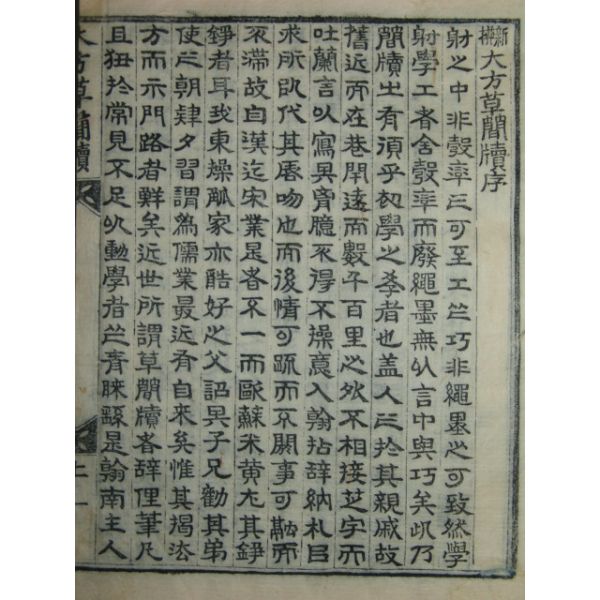 新撰大方草簡牘序
射之中非彀率之可至工之巧非繩墨之可致然學
射學工者舍彀率而廢繩墨無以言中與巧矣此乃
簡牘之有須乎初學之者也盖人之於其親戚故
舊近而在巷閈遠而數千百里之外不相接芝宇而
吐蘭言以寫其胷臆不得不操意入翰拈辞納札㠯
求所以代其唇吻也而後情可疏而不閼事可融而
不滯故自漢迄宋業是者不一而歐蘇米黃尤其錚
錚者耳我東操觚家亦酷好之父詔其子兄勸其弟
使之朝肄夕習謂爲儒業最近有自來矣惟其揭法
方而示門路者鮮矣近世所謂草簡牘者辞俚筆凡
且狃於常見不足以動學者之青睞繇是翰南主人
大方草簡牘 上 一